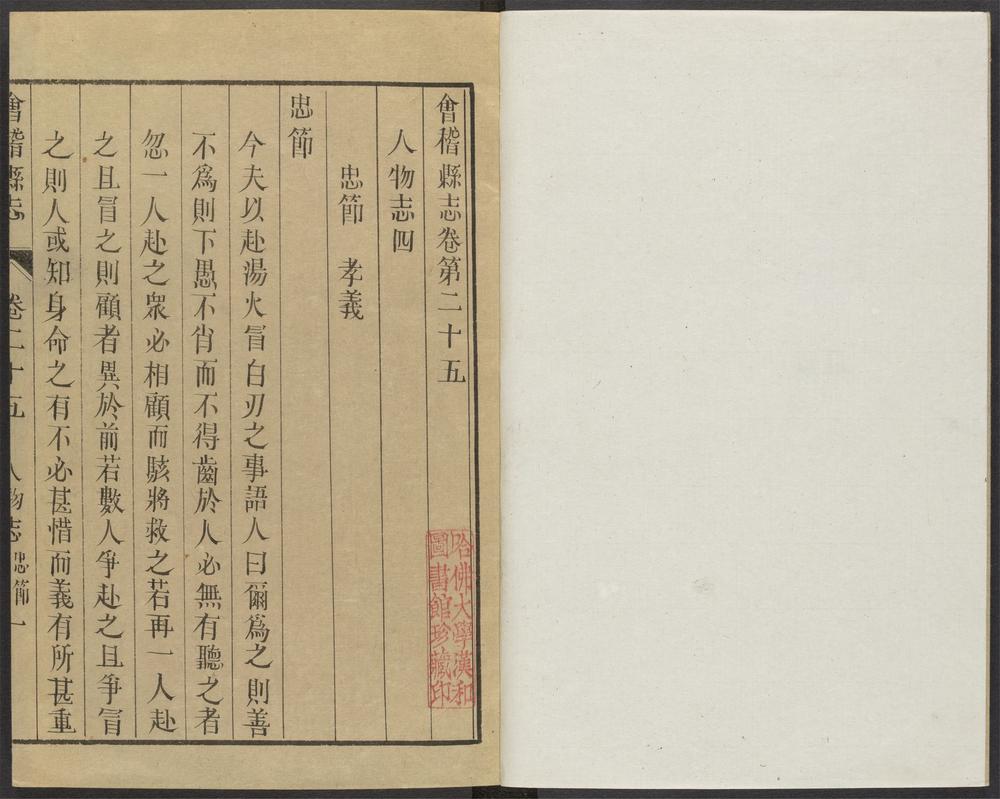 會稽縣志卷第二十五
人物志四
忠節 孝義
忠節
今夫以赴湯火冐白刃之事語人曰爾爲之則善
不爲則下愚不肖而不得齒於人必無有聽之者
忽一人赴之衆必相顧而駭將救之若再一人赴
之且冐之則顧者異於前若數人爭赴之且爭冐
之則人或知身命之有不必甚惜而義有所甚重
會稽縣志 卷二十五 人物志 忠節 一
哈佛大學漢和
圖書館珍藏印